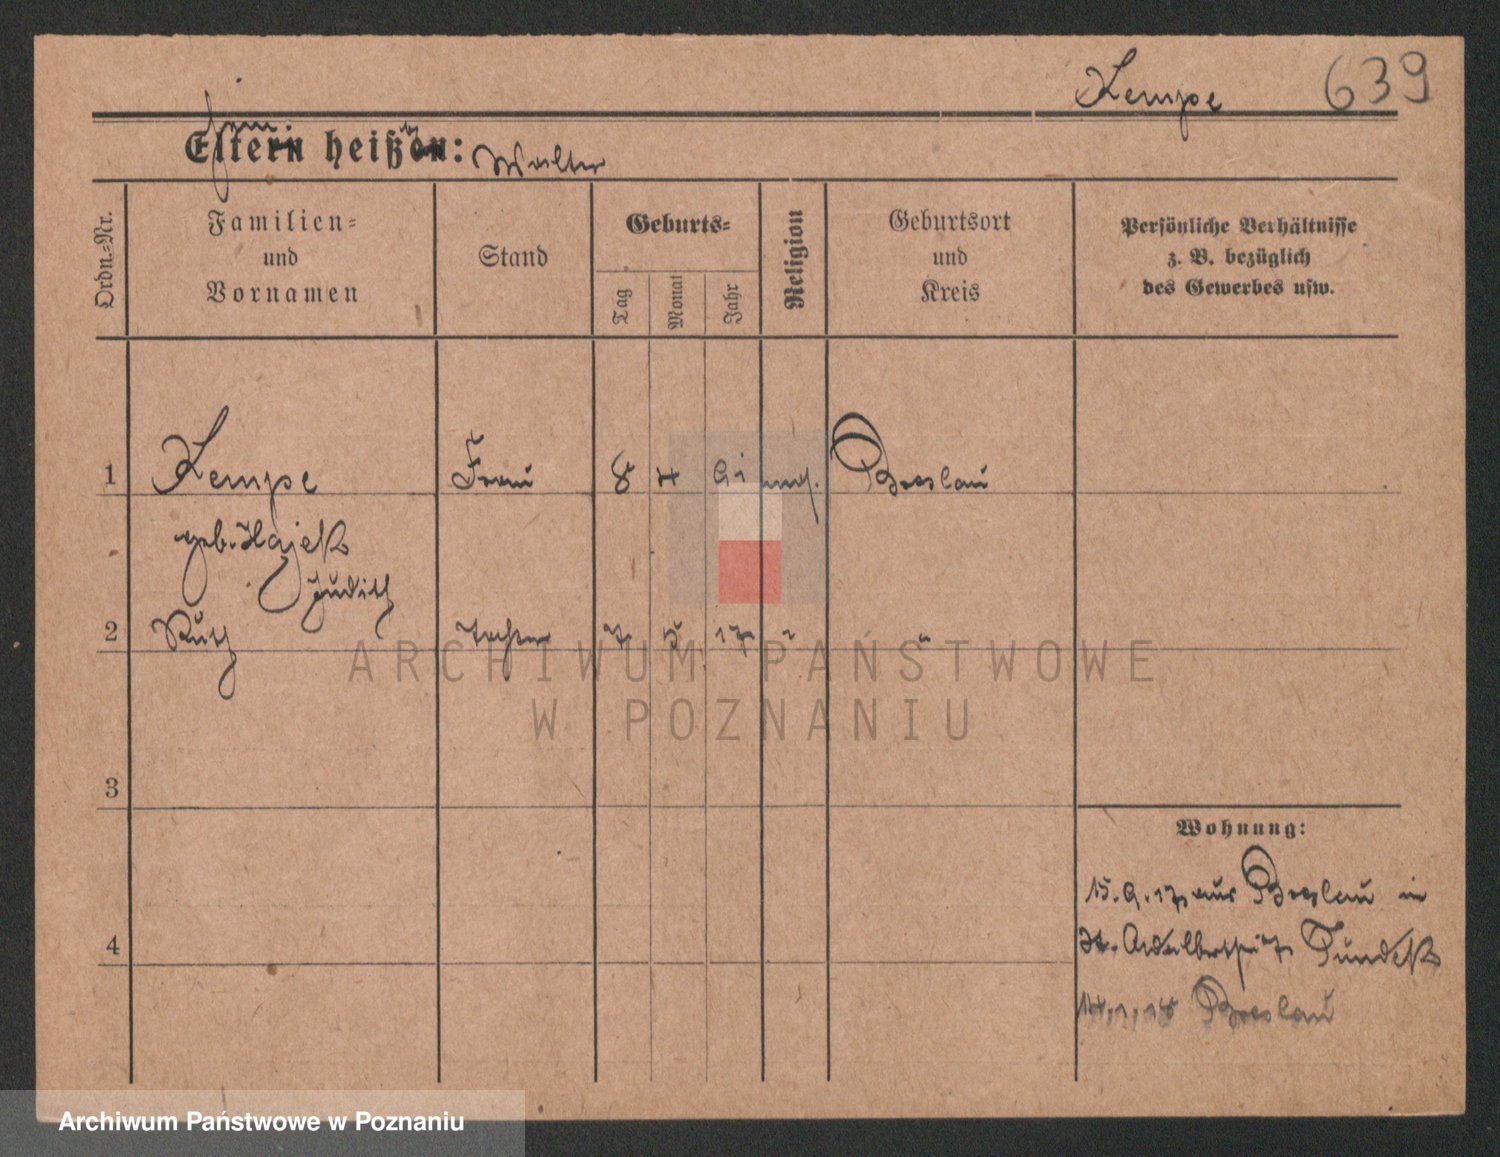 Kempe 639
Eltern heißen: Walter
Ordn.-Nr.
Familien=
und
Vornamen
Stand
Geburts=
Tag
Monat
Jahr
Religion
Geburtsort
und
Kreis
Persönliche Verhältnisse
z. B. bezüglich
des Gewerbes usw.
1 Kempe Frau 8 4 91 Breslau
geb. Hajek
Judith
2 Ruth Tochter 7 5 17 " "
3
4
Wohnung:
15.9.17 aus Breslau in
St. Adalbertstr
14.1.18 Breslau
ARCHIWUM PAŃSTWOWE
W POZNANIU
Archiwum Państwowe w Poznaniu